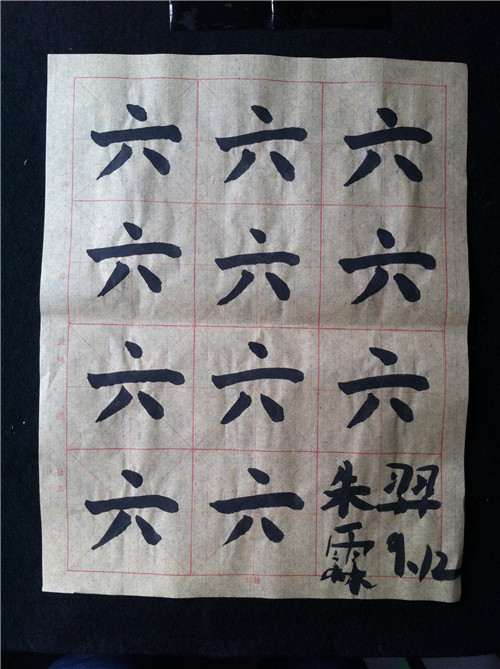 六 六 六
六 六 六
六 六 六
六 六
朱霖
羿
9.12